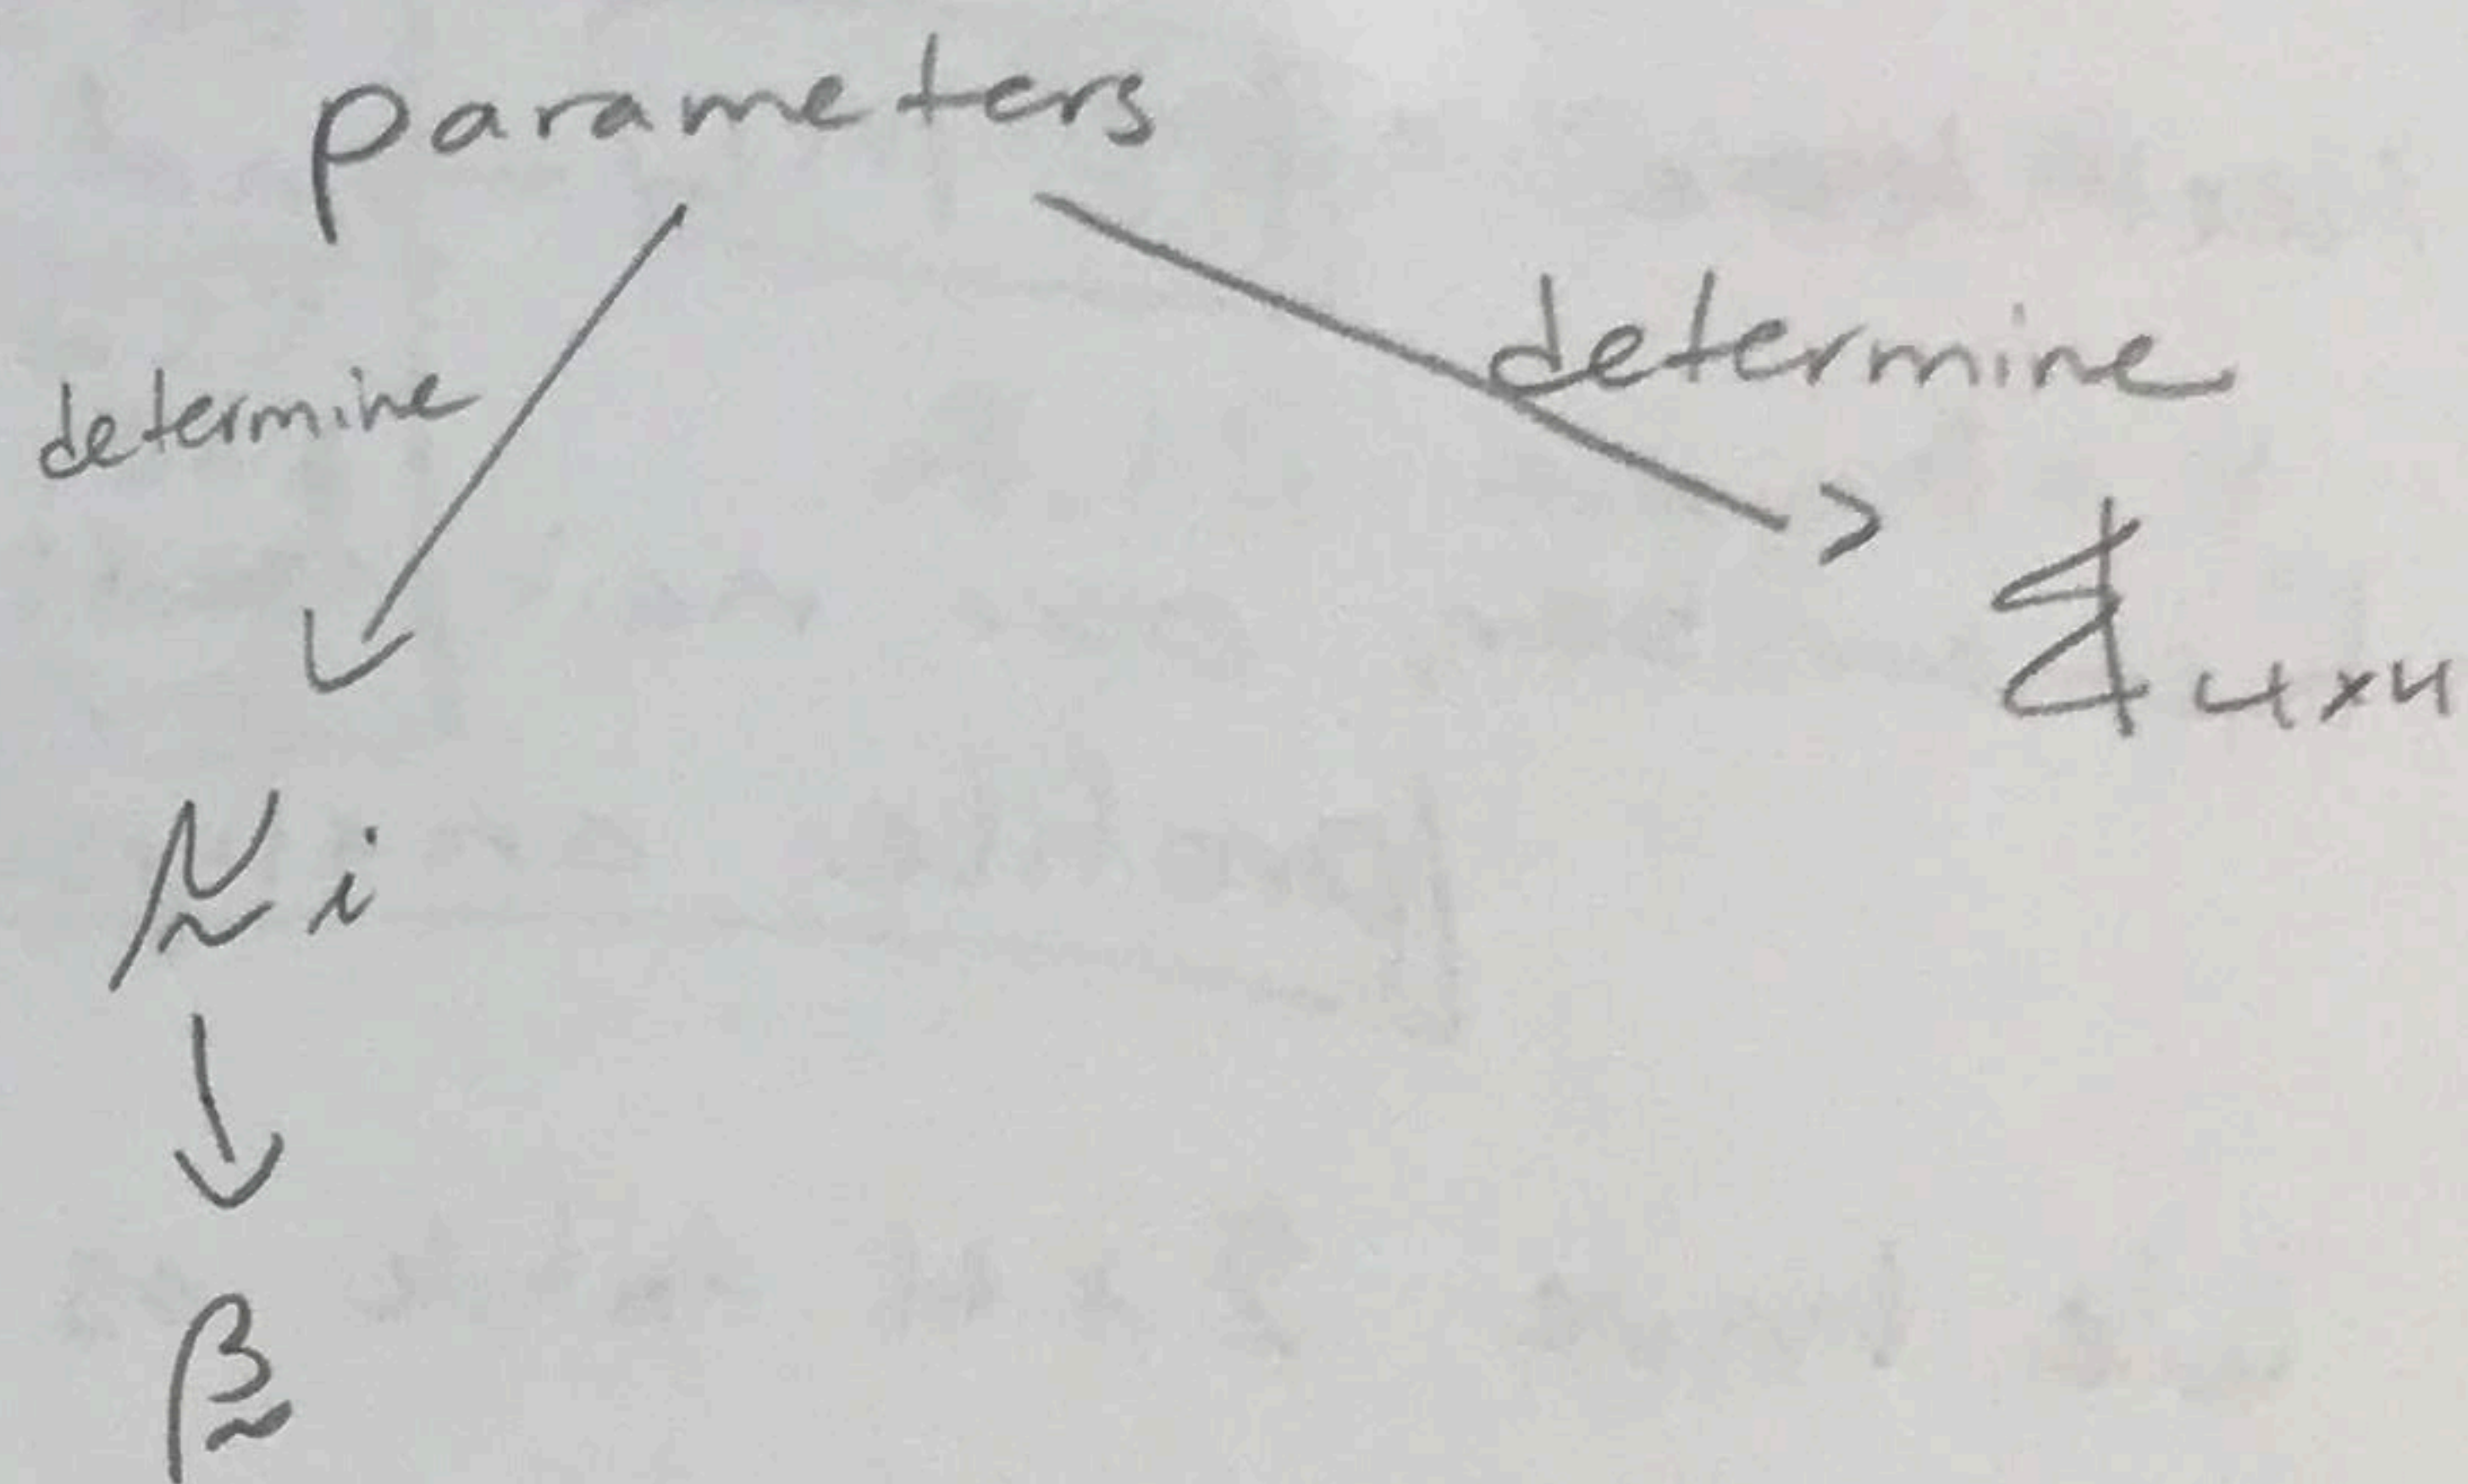 parameters
determine
determine
Σ 4x4
μ̰ i
β̰